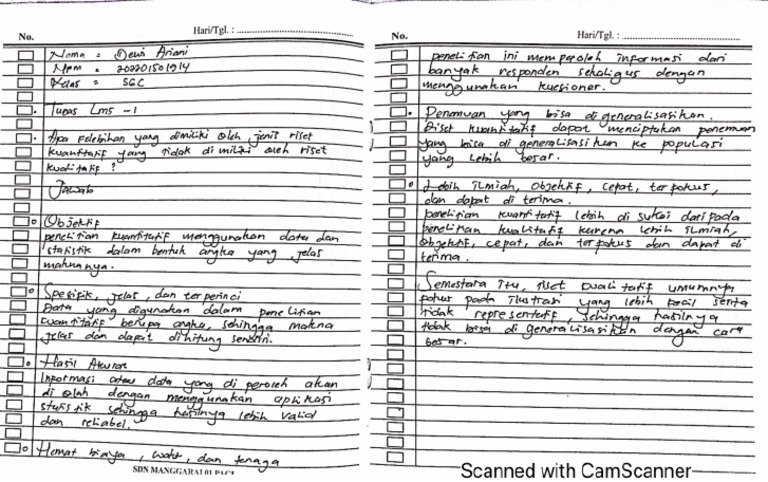 No.
Hari/Tgl. :
Nama = Dewi Ariani
Npm =
Kelas = SGC
Tugas Lms -1
Apa kelebihan yang dimiliki oleh jenis riset
kuantitatif yang tidak di miliki oleh riset
kualitatif ?
Jawab
Objektif
penelitian kuantitatif menggunakan data dan
statistik dalam bentuk angka yang jelas
maknanya.
Spesifik, jelas, dan terperinci
Data yang digunakan dalam penelitian
kuantitatif berupa angka, sehingga makna
jelas dan dapat dihitung sendiri.
Hasil Akurat
Informasi atau data yang di peroleh akan
di olah dengan menggunakan aplikasi
statistik sehingga hasilnya lebih valid
dan reliabel.
Hemat biaya, waktu, dan tenaga
SDN MANGGARAI 01 PAGI
No.
Hari/Tgl. :
penelitian ini memperoleh informasi dari
banyak responden sekaligus dengan
menggunakan kuesioner.
Penemuan yang bisa di generalisasikan.
Riset kuantitatif dapat menciptakan penemuan
yang bisa di generalisasikan ke populasi
yang lebih besar.
Lebih ilmiah, objektif, cepat, terfokus,
dan dapat di terima.
penelitian kuantitatif lebih di sukai daripada
penelitian kualitatif karena lebih ilmiah,
objektif, cepat, dan terfokus dan dapat di
terima.
Sementara itu, riset kualitatif umumnya
fokus pada ilustrasi yang lebih kecil serta
tidak representatif, sehingga hasilnya
tidak bisa di generalisasikan dengan cara
besar.
Scanned with CamScanner